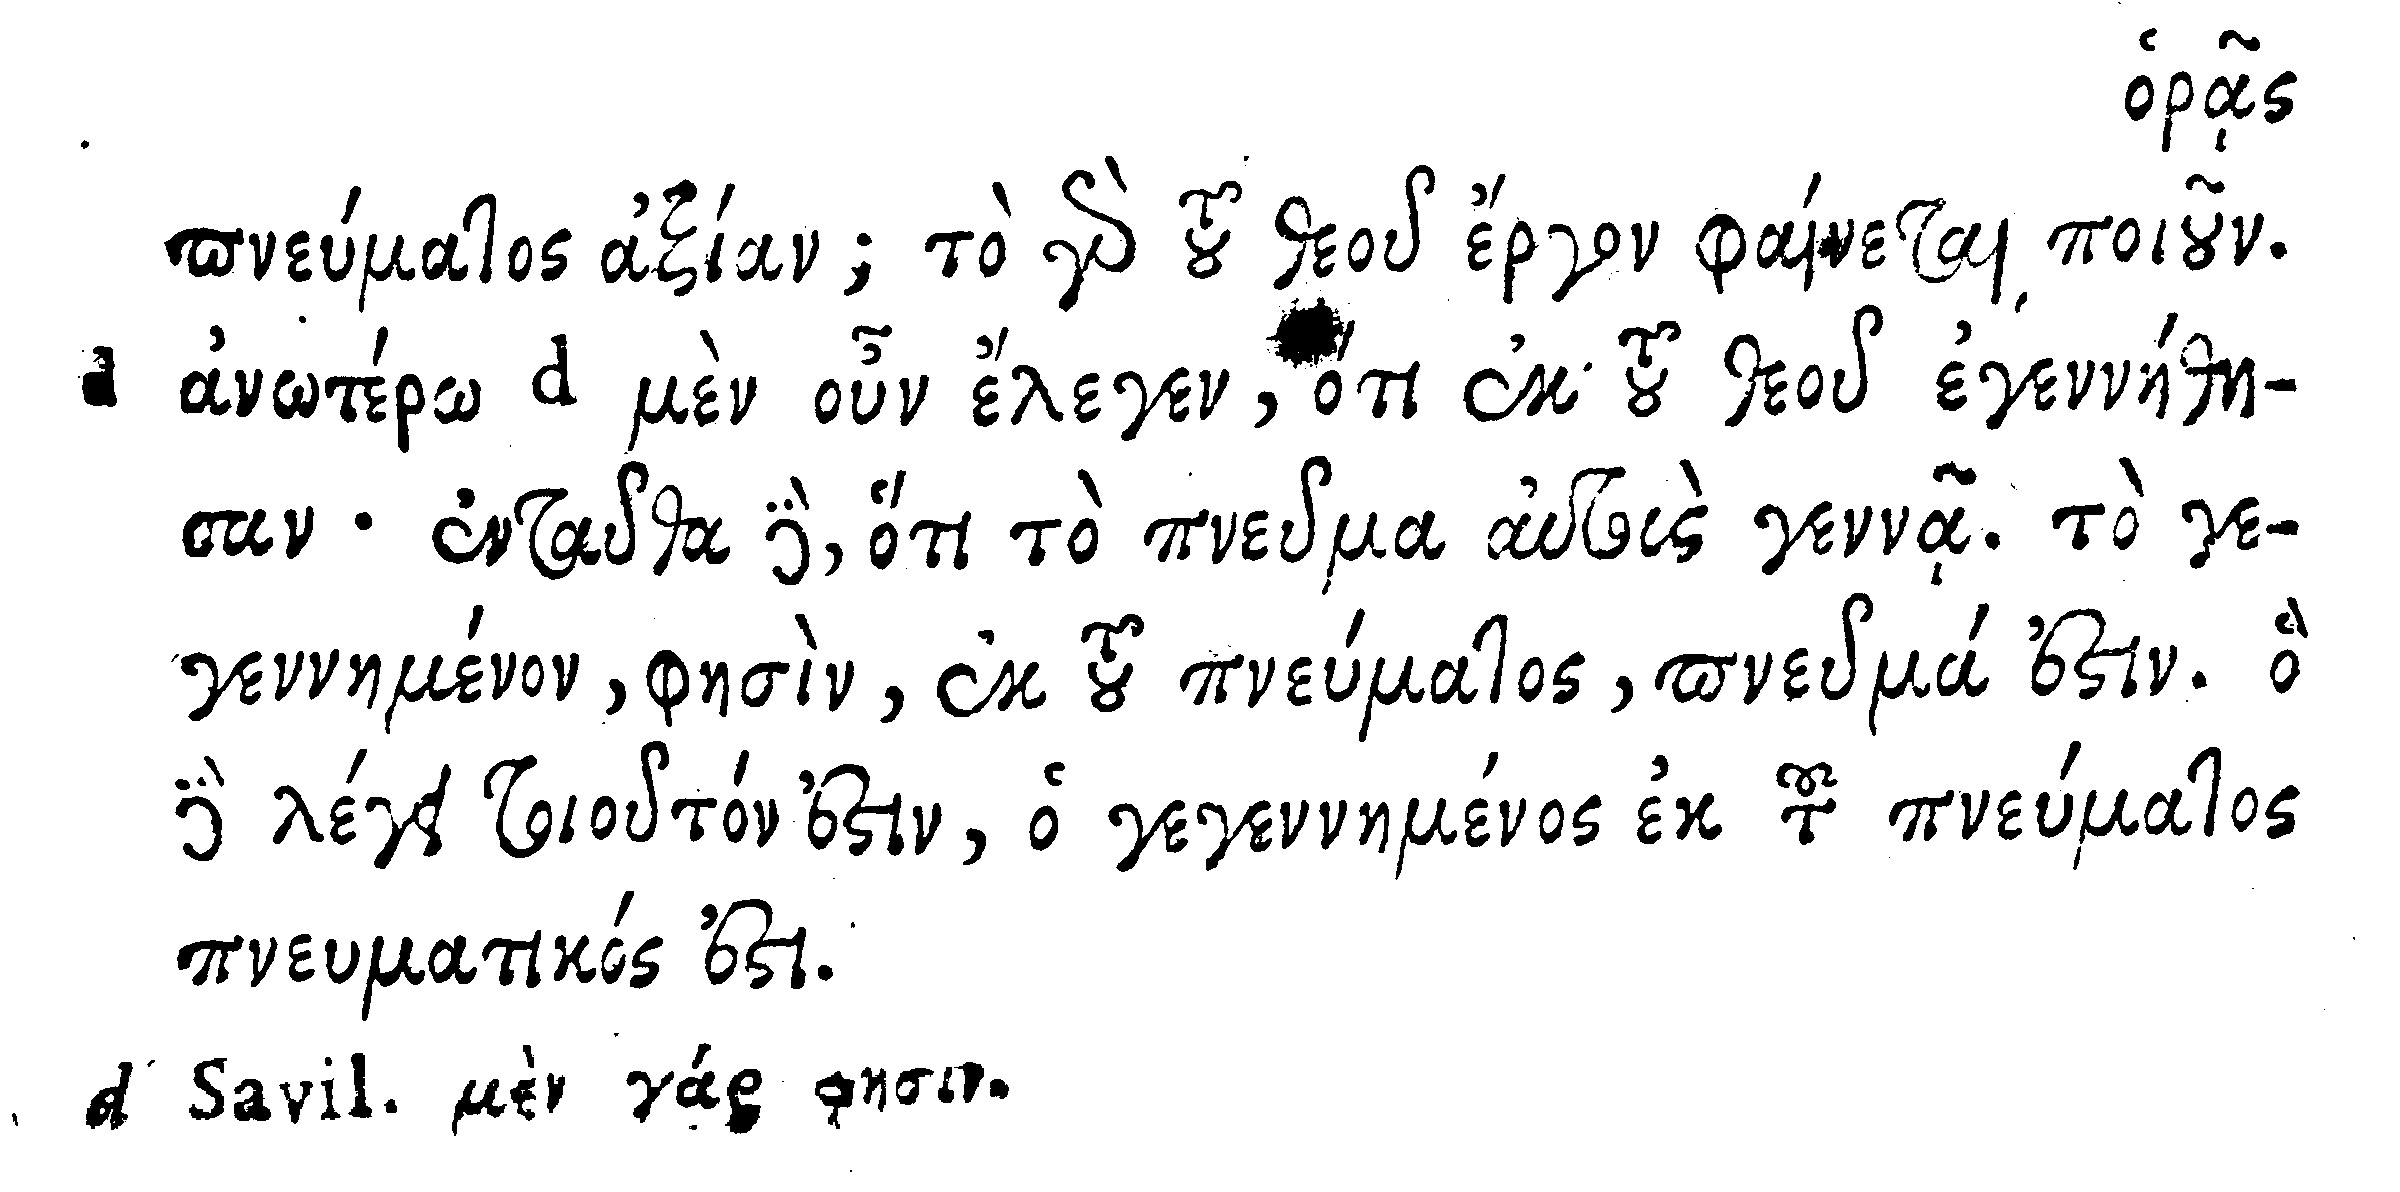 ὁρᾷς
πνεύματος ἀξίαν; τὸ γὰρ τοῦ θεοῦ ἔργον φαίνεται ποιοῦν.
a ἀνωτέρω d μὲν οὖν ἔλεγεν, ὅτι ἐκ τοῦ θεοῦ ἐγεννήθη-
σαν · ἐνταῦθα δὲ, ὅτι τὸ πνεῦμα αὐτοὺς γεννᾷ. τὸ γε-
γεννημένον, φησὶν, ἐκ τοῦ πνεύματος, πνεῦμά ἐστιν. ὃ
δὲ λέγει τοιοῦτόν ἐστιν, ὁ γεγεννημένος ἐκ τοῦ πνεύματος
πνευματικός ἐστι.
d Savil. μὲν γάρ φησιν.